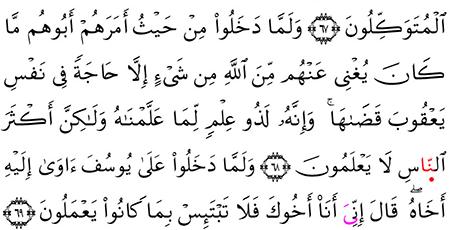 ٱلۡمُتَوَكِّلُونَ ٦٧ وَلَمَّا دَخَلُواْ مِنۡ حَيۡثُ أَمَرَهُمۡ أَبُوهُم مَّا
كَانَ يُغۡنِي عَنۡهُم مِّنَ ٱللَّهِ مِن شَيۡءٍ إِلَّا حَاجَةٗ فِي نَفۡسِ
يَعۡقُوبَ قَضَىٰهَاۚ وَإِنَّهُۥ لَذُو عِلۡمٖ لِّمَا عَلَّمۡنَٰهُ وَلَٰكِنَّ أَكۡثَرَ
ٱلنَّاسِ لَا يَعۡلَمُونَ ٦٨ وَلَمَّا دَخَلُواْ عَلَىٰ يُوسُفَ ءَاوَىٰٓ إِلَيۡهِ
أَخَاهُۖ قَالَ إِنِّيَ أَنَا۠ أَخُوكَ فَلَا تَبۡتَئِسۡ بِمَا كَانُواْ يَعۡمَلُونَ ٦٩